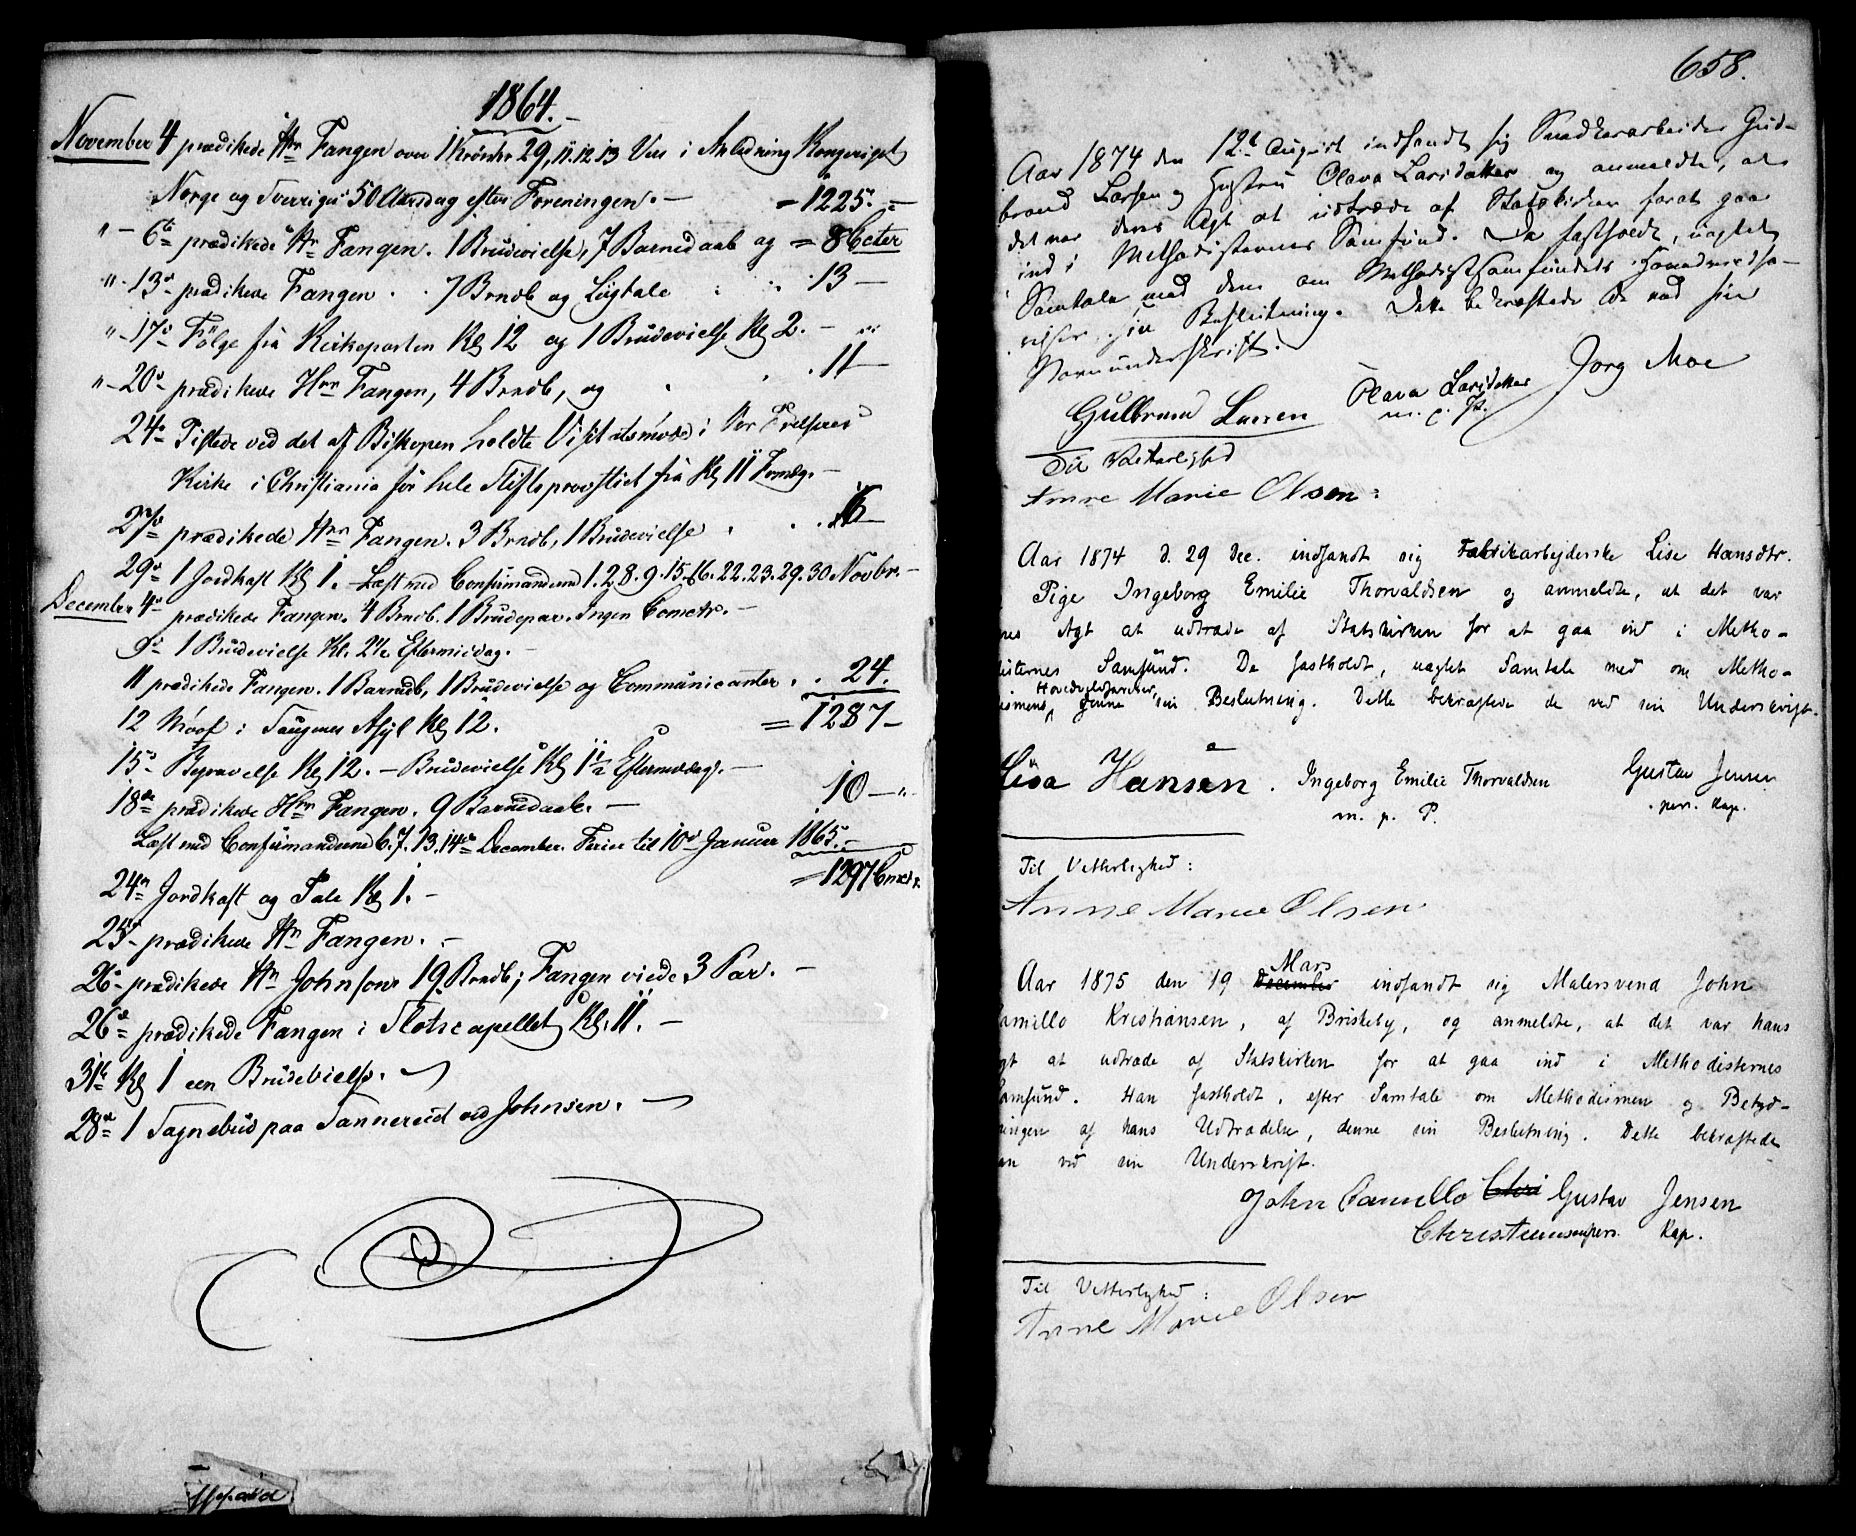 1864.
November 4 prædikede Hrr Fangen over 1 Krønke 29, 11.12.13 Vers i Anledning Kongeriget
Norge og Sverriges 50 Aarsdag efter Foreningen. — = 1225. =
" — 6te prædikede Hr Fangen. 1 Brudevielse, 7 Barnedaab og = 8 Ccter
" - 13de prædikede Fangen . . 7 Brndb og Ligtale . . 13 —
" - 17de Følge fra Kirkeporten Kl 12 og 1 Brudevielse Kl 2. — "
" - 20de prædikede Hrr Fangen, 4 Brndb, og . . . 11 —
24de Tilstede ved det af Biskopen holdte Visitatsmøde i Vor Frelsers
Kirke i Christiania for hele Stiftsprovstiet fra Kl 11 Formdg. —
27de prædikede Hrr Fangen. 3 Brndb, 1 Brudevielse . . . 16
29de 1 Jordkast Kl 1. Læst med Confirmanderne 1.2.8.9.15.16.22.23.29.30 Novbr. —
December 4de prædikede Fangen. 4 Brndb. 1 Brudepar. Ingen Cometr. —
9de 1 Brudevielse Kl. 2½ Eftermiddag. —
11 prædikede Fangen. 1 Barnedb, 1 Brudevielse og Communicanter . . 24.
12 i Asyl Kl 12. = 1287 —
15de Begravelse Kl 12. — Brudevielse Kl 1½ Eftermiddag. —
18de prædikede Hrr Fangen. 9 Barnedaab. — 10 — "
Læst med Confirmanderne 6.7.13.14de December. Ferier til 10de Januar 1865. —
= 1297 Cmctr.
24de Jordkast og Tale Kl 1. —
25de prædikede Hr Fangen. —
26de prædikede Hr Johnsen 19 Brndb; Fangen viede 3 Par. —
26de prædikede Fangen i Slotscapellet Kl. 11. —
31te Kl 1 een Brudevielse. —
28de 1 Sognebud paa ved Johnsen. —
658.
Aar 1874 den 12te August indfandt sig Snedkerarbeider Gud-
brand Larsen og Hustru Olava Larsdatter og anmeldte, at
det var deres Agt at udtræde af Statskirken forat gaa
ind i Methodisternes Samfund. De fastholdt, uagtet
Samtale med dem om Methodistsamfundets Hoved
sin Beslutning. Dette bekræftede de ved sin
Navnunderskrift.
Jørg Moe
Gulbrand Larsen Olava Larsdatter
m. p. P.
Til Vitterlighed
Anne Marie Olsen:
Aar 1874 d. 29 Dec. indfandt sig Fabrikarbejderske Lise Hansdtr.
Pige Ingeborg Emilie Thorvaldsen og anmeldte, at det var
nes Agt at udtræde af Statskirken for at gaa ind i Metho-
disternes Samfund. De fastholdt, uagtet Samtale med om Metho-
ismens Hovedvildfarelser, denne sin Beslutning. Dette bekræftede de ved sin Underskrift.
Lisa Hansen . Ingeborg Emilie Thorvaldsen Gustav Jensen
m. p. P. pers. Kap.
Til Vitterlighed :
Anne Marie Olsen.
Mars
Aar 1875 den 19 December indfandt sig Malersvend John
amillo Kristiansen, af Briskeby, og anmeldte, at det var hans
gt at udtræde af Statskirken for at gaa ind i Methodisternes
amfund. Han fastholdt, efter Samtale om Methodismen og Betyd-
ningen af hans Udtrædelse, denne sin Beslutning. Dette bekræftede
an ved sin Underskrift.
John Camillo Chri Gustav Jensen
Christiansen pers. Kap.
Til Vitterlighed :
Anne Marie Olsen